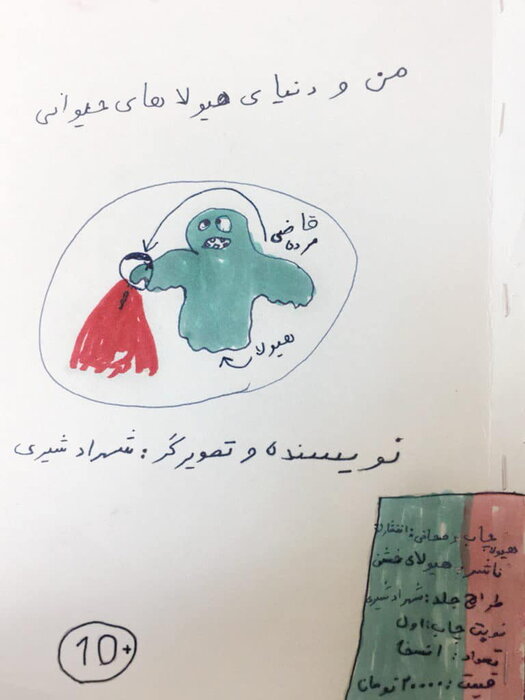 من و دنیای هیولا های حیوانی
قاضی
مرده
هیولا
نویسنده و تصویرگر: شهراد شیری
چاپ و صحافی: انتشارات
هیولا
ناشر: هیولای خشن
طراح جلد: شهراد شیری
نوبت چاپ: اول
تعداد: ۱ نسخه
قیمت: ۲۰۰۰۰ تومان
10+